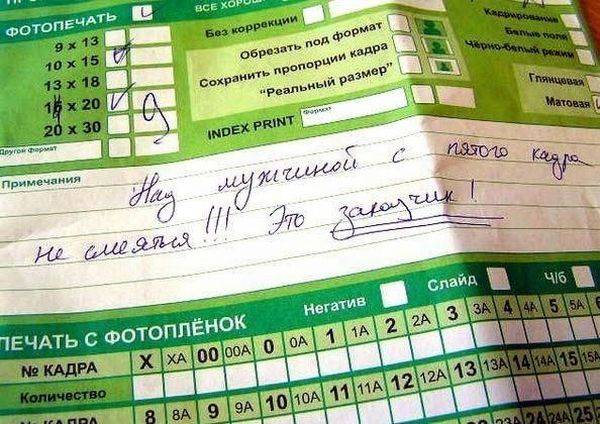 ФОТОПЕЧАТЬ
9 x 13
10 x 15
13 x 18
x 20
9
20 x 30
Другой формат
ВСЕ ХОРОШ
Без коррекции
Обрезать под формат
Сохранить пропорции кадра
"Реальный размер"
INDEX PRINT
Формат
Кадрирование
Белые поля
Чёрно-белый режим
Глянцевая
Матовая
Примечания
Над мужчиной с пятого кадра
не смеяться!!! Это заказчик!
ПЕЧАТЬ С ФОТОПЛЁНОК
Негатив
Слайд
Ч/б
№ КАДРА X XA 00 00A 0 0A 1 1A 2 2A 3 3A 4 4A 5 5A
Количество
№ КАДРА 8 8A 9 9A 10 10A 11 11A 12 12A 13 13A 14 14A 15 15A
23 23A 24 24A 25